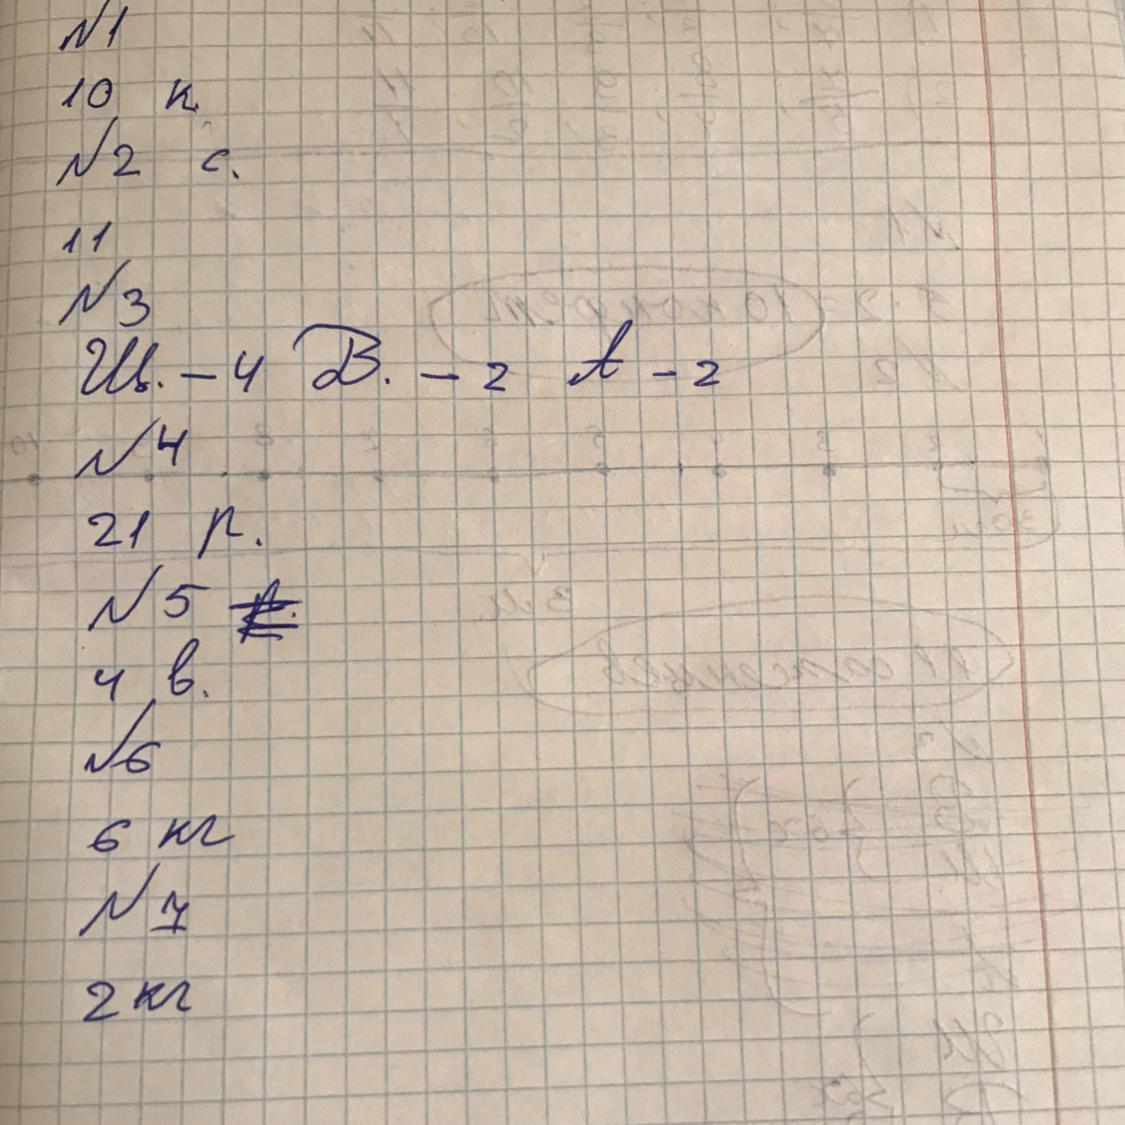 №1
10 к.
№2 с.
11
№3
Щ. – 4 В. – 2 А – 2
№4
21 р.
№5
4 в.
№6
6 кг
№7
2 кг